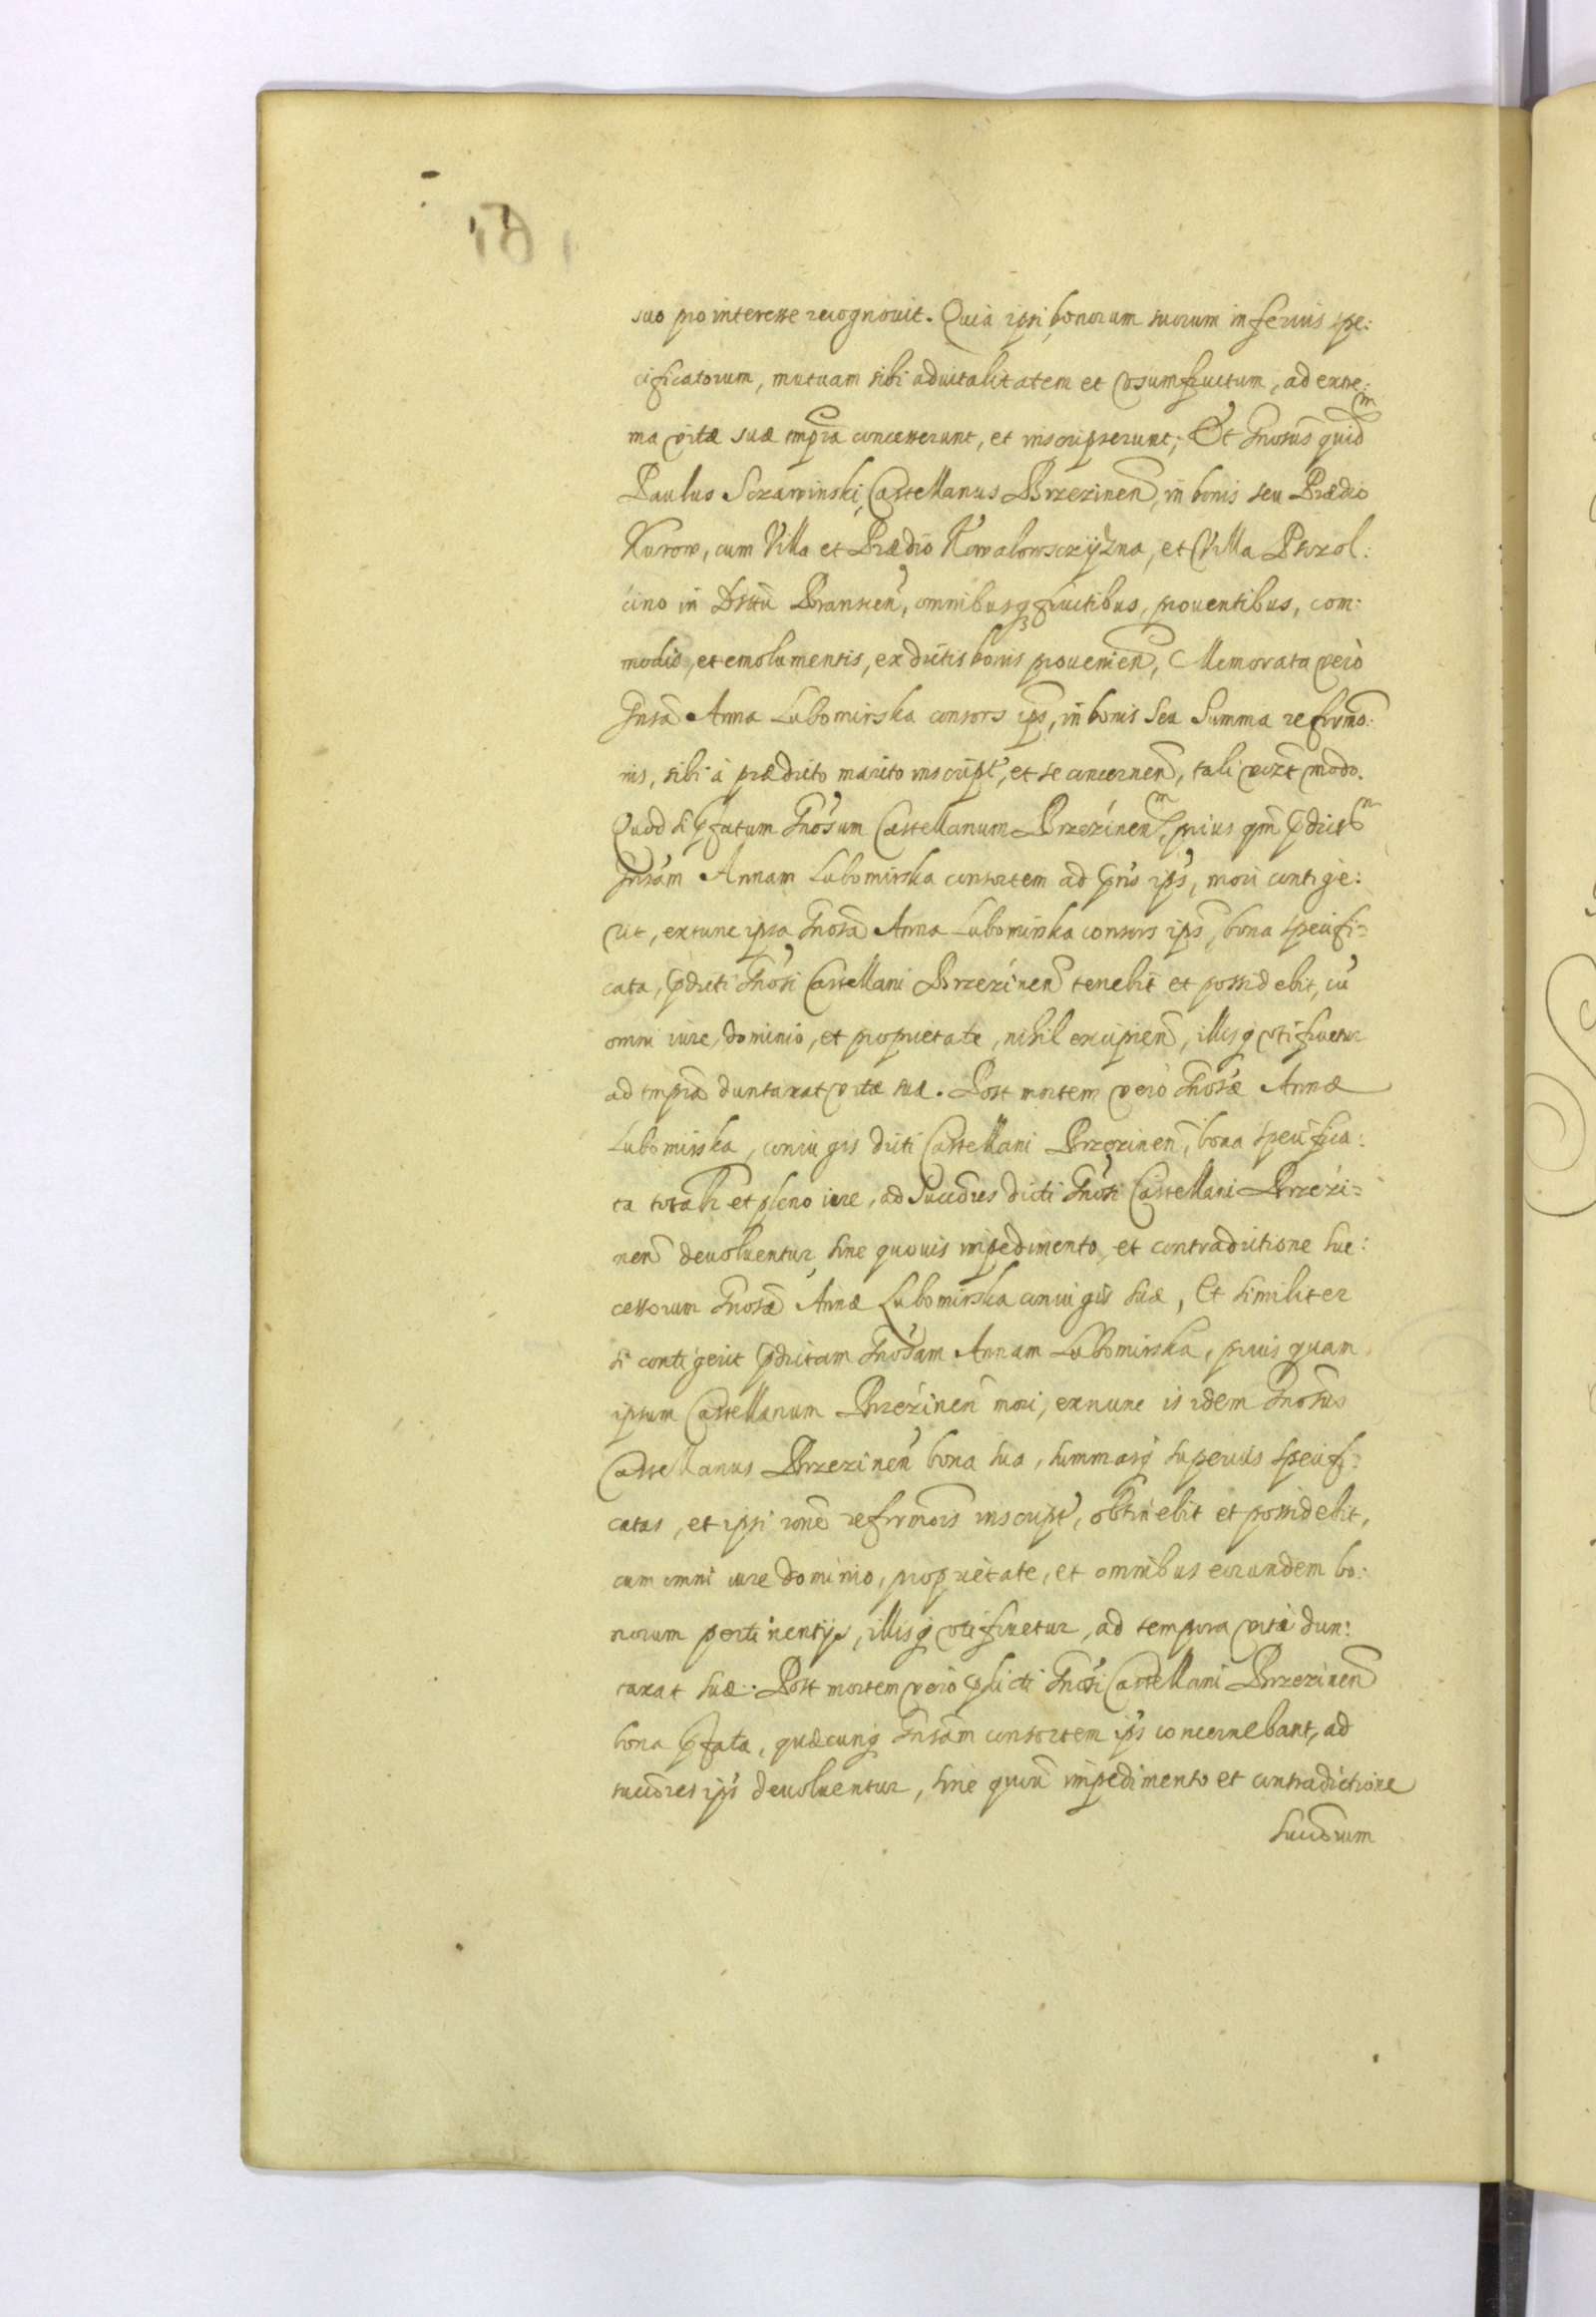 suo pro interesse recognovit. Quia ipsi bonorum suorum inferius spe:
cificatorum, mutuam sibi advitalitatem et vsumfructum, ad extre:
ma vitæ suæ tmpra concesserunt, et inscripserunt; Et Gnosus quidm
Paulus Sczawinski, Castellanus Brzezinen, in bonis seu Prædio
Kurow, cum Villa et Prædio Kowalowsczyzna, et Villa Pszol:
cino in Dsttu Bransien, omnibusq fructibus, prouentibus, com:
modis, et emolumentis, ex dictis bonis prouenien, Memorata verò
Gnsa Anna Lubomirska consors ips, in bonis Seu Summa reformõ:
nis, sibi à prædicto marito inscript, et se concernen, tali vizt modo.
Quod si pfatum Gnosum Castellanum Brzezinenm, prius qm pdictm
Gnsam Annam Lubomirska consortem ad pns ips, mori contige:
rit, extunc ipsa Gnosa Anna Lubomirska consors ips, bona specifi=
cata, pdicti Gnosi Castellani Brzezinen tenebit et possidebit, cu
omni iure, dominio, et proprietate, nihil excipien, illisq vtifruetur
ad tmpra duntaxat vitæ suæ. Post mortem verò Gnosæ Annæ
Lubomirska, coniugis dicti Castellani Brzezinen, bona specifica:
ta totali et pleno iure, ad Succores dicti Gnosi Castellani Brzezi=
nen devoluentur, sine quouis impedimento, et contradictione suc:
cessorum Gnosæ Annæ Lubomirska coniugis suæ, Et similiter
si contigerit pdictam Gnosam Annam Lubomirska, prius quam
ipsum Castellanum Brzezinen mori, ex nunc is idem Gnosus
Castellanus Brzezinen bona sua, summasq superius specifi=
catas, et ipsi rone reformõis inscript, obtinebit et possidebit,
cum omni iure dominio, proprietate, et omnibus eorundem bo:
norum pertinentijs, illisq vtifruetur, ad tempora vitæ dun:
taxat suæ. Post mortem verò pdicti Gnosi Castellani Brzezinen
bona pfata, quæcunq Gnsam consortem ips concernebant, ad
succores ips devoluentur, sine quovis impedimento et contradictione
succorum